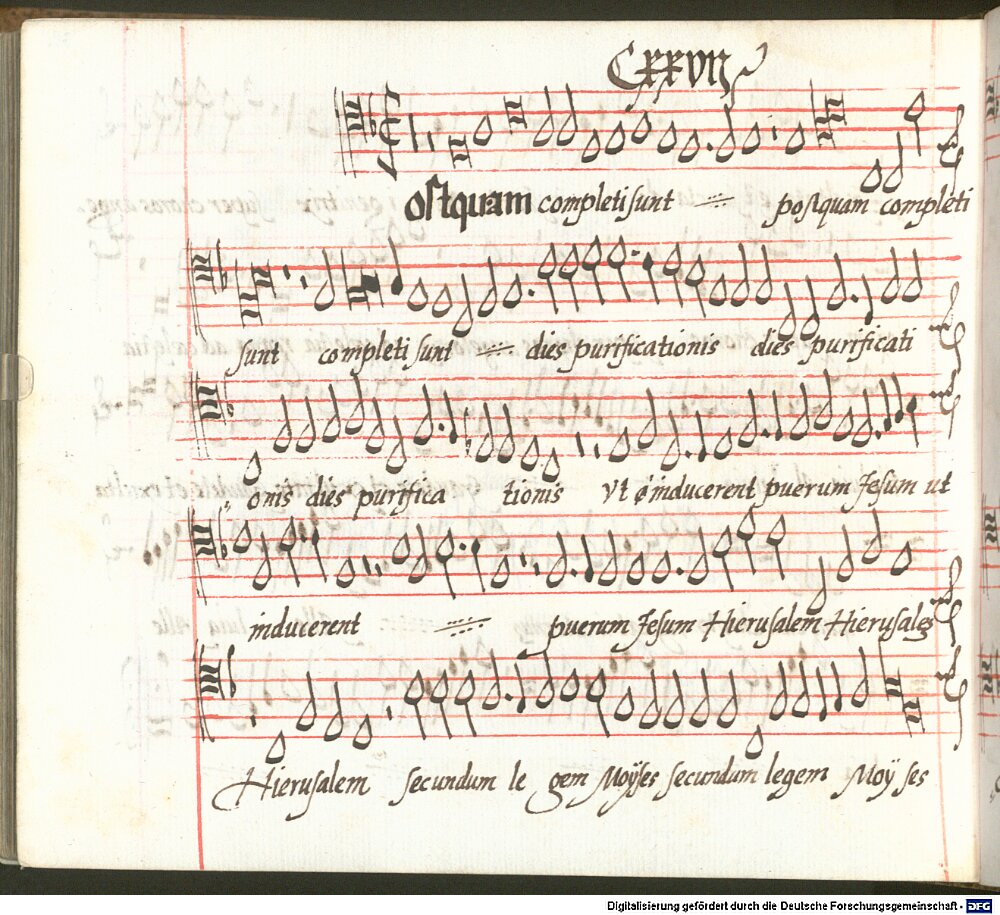 CXXVII
ostquam completi sunt postquam completi
sunt completi sunt dies purificationis dies purificati
onis dies purifica tionis Vt inducerent puerum Jesum ut
inducerent puerum Jesum Hierusalem Hierusalē
Hierusalem secundum le gem Moÿses secundum legem Moÿ ses
Digitalisierung gefördert durch die Deutsche Forschungsgemeinschaft - DFG